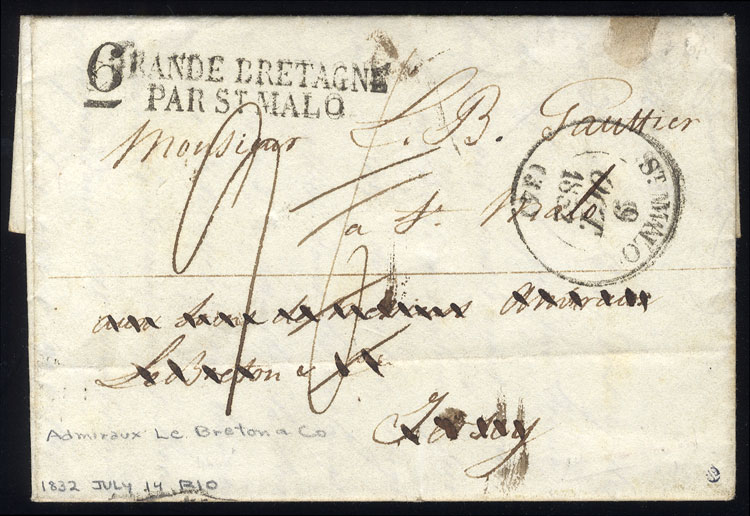 6
GRANDE BRETAGNE
PAR ST MALO
Monsieur L. B. Gaultier
a St. Malo
ST MALO
9
OCT.
1832
(34)
aux soins de
Le Breton & Co
Jersey
Admiraux Le Breton & Co
1832 JULY 14 RIO